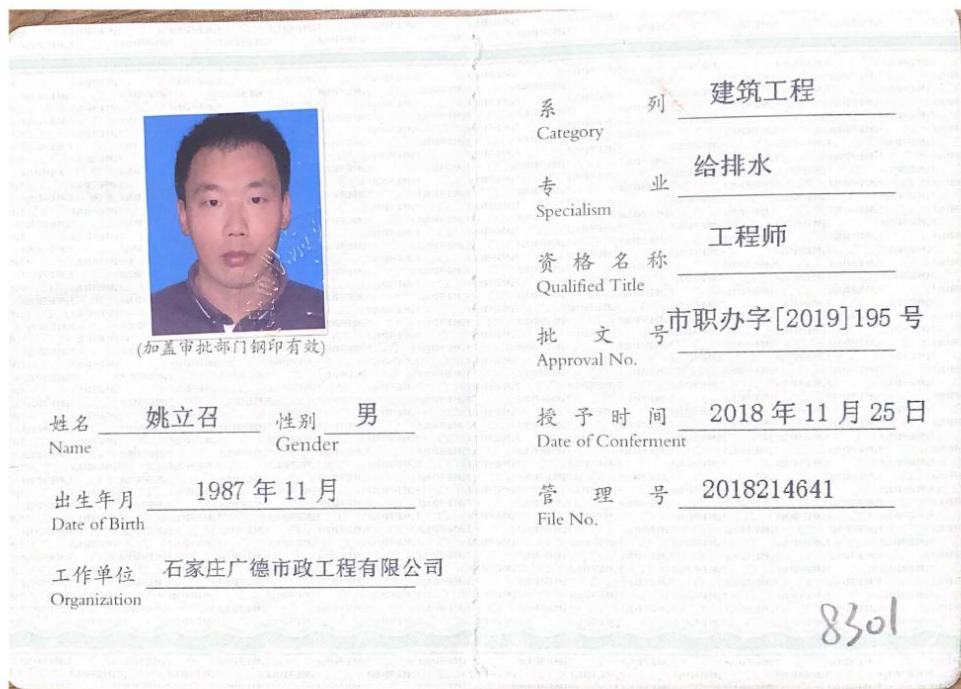 (加盖审批部门钢印有效)
姓名 姚立召 性别 男
Name Gender
出生年月 1987 年 11 月
Date of Birth
工作单位 石家庄广德市政工程有限公司
Organization
系列 建筑工程
Category
专业 给排水
Specialism
资格名称 工程师
Qualified Title
批文号 市职办字[2019]195 号
Approval No.
授予时间 2018 年 11 月 25 日
Date of Conferment
管理号 2018214641
File No.
8301